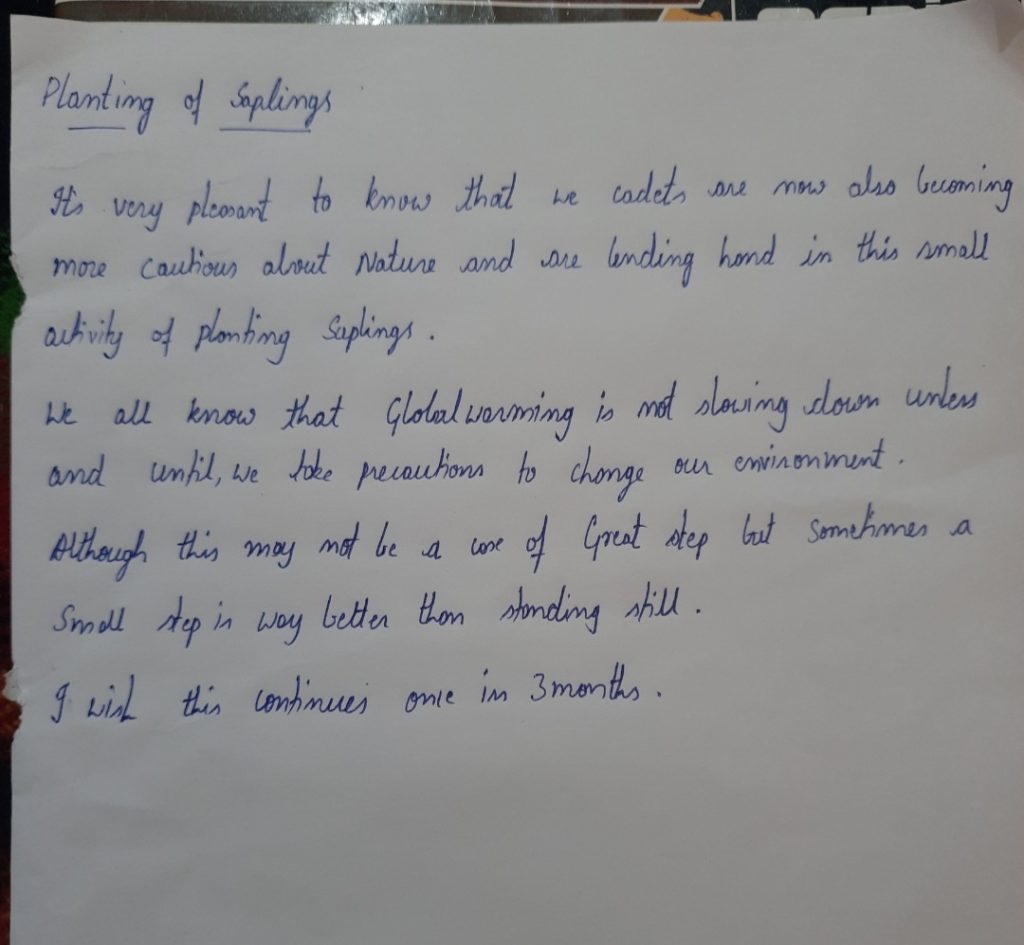 Planting of Saplings
It's very pleasant to know that we cadets are now also becoming
more cautious about Nature and are lending hand in this small
activity of planting Saplings.
We all know that Global warming is not slowing down unless
and until, we take precautions to change our environment.
Although this may not be a case of Great step but Sometimes a
Small step is way better than standing still.
I wish this continues once in 3 months.